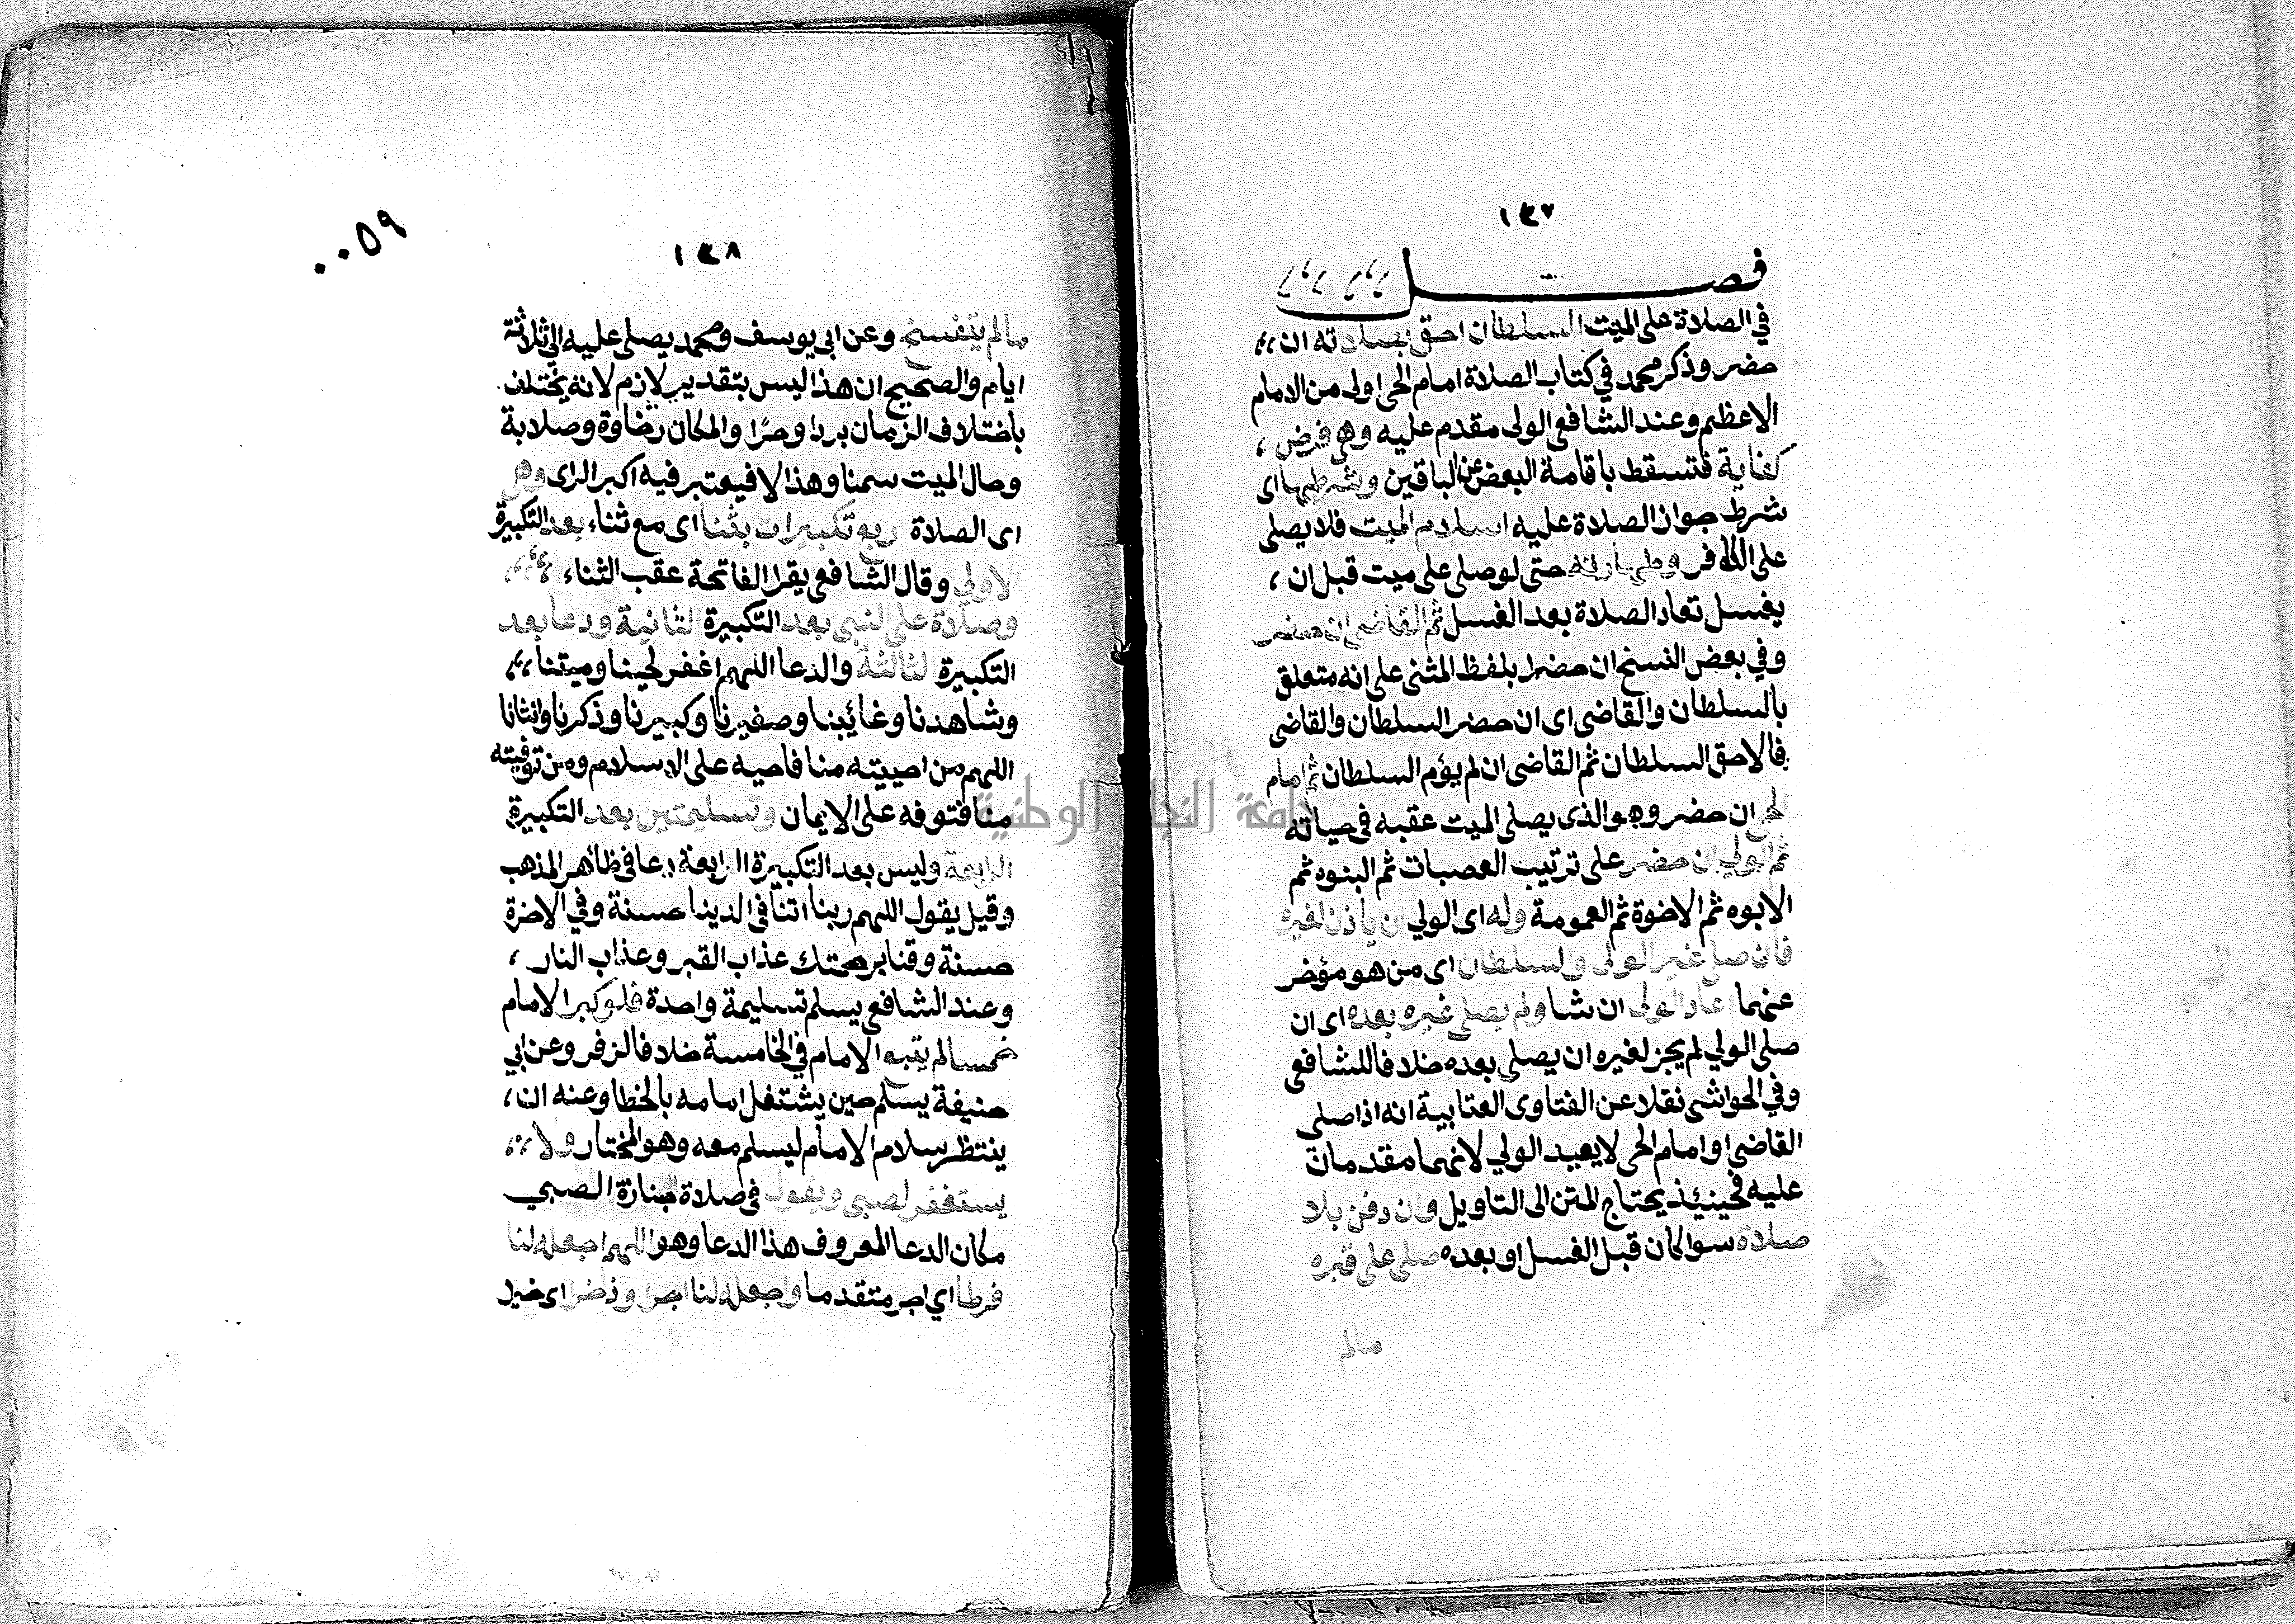 ١٤٧
فصل
في الصلاة على الميت السلطان احق بصلاته ان
حضر وذكر محمد في كتاب الصلاة امام الحى اولى من الامام
الاعظم وعند الشافعى الولى مقدم عليه وهى فرض ،
كفاية فتسقط باقامة البعض عن الباقين وشرطها اى
شرط جواز الصلاة عليه اسلام الميت فلا يصلى
على الكافر وطهارته حتى لو صلى على ميت قبل ان ،
يغسل تعاد الصلاة بعد الغسل ثم القاضى ان حضر
وفي بعض النسخ ان حضرا بلفظ المثنى على انه متعلق
بالسلطان والقاضى اى ان حضر السلطان والقاضى
فالاحق السلطان ثم القاضى ان لم يؤم السلطان ثم امام
الحى ان حضر وهو الذى يصلى الميت عقبه فى حياته
ثم الولي ان حضر على ترتيب العصبات ثم البنوه ثم
الابوه ثم الاخوة ثم العمومة وله اى الولي ان ياذن لغيره
فان صلى غير الولى والسلطان اى من هو مؤخر
عنهما اعاد الولى ان شا ولم يصلى غيره بعده اى ان
صلى الولي لم يجز لغيره ان يصلى بعده خلافا للشافعى
وفي الحواشى نقلا عن الفتاوى العتابية انه اذا صلى
القاضى او امام الحى لا يعيد الولي لانهما مقدمان
عليه فحينئذ يحتاج المتن الى التاويل وان دفن بلا
صلاة سوا كان قبل الغسل او بعده صلى على قبره
مالم
٠٠٥٩
١٤٨
مالم يتفسخ وعن ابى يوسف ومحمد يصلى عليه الى ثلاثة
ايام والصحيح ان هذا ليس بتقدير لازم لانه يختلف
باختلاف الزمان بردا وحرًا والمكان رخاوة وصلابة
وحال الميت سمنا وهذالا فيعتبر فيه اكبر الراى وهى
اى الصلاة اربع تكبيرات بثنا اى مع ثناء بعد التكبيرة
الاولى وقال الشافعى يقرا الفاتحة عقب الثناء
وصلاة على النبى بعد التكبيرة الثانية ودعا بعد
التكبيرة الثالثة والدعا اللهم اغفر لحينا وميتنا
وشاهدنا وغائبنا وصغيرنا وكبيرنا وذكرنا وانثانا
اللهم من احييته منا فاحيه على الاسلام ومن توفيته
منا فتوفه على الايمان وتسليمتين بعد التكبيرة
الرابعة وليس بعد التكبيرة الرابعة دعا فى ظاهر المذهب
وقيل يقول اللهم ربنا اتنا فى الدنيا حسنة وفي الاخرة
حسنة وقنا برحمتك عذاب القبر وعذاب النار ،
وعند الشافعى يسلم تسليمة واحدة فلو كبرا الامام
خمسا لم يتبع الامام في الخامسة خلافا لزفر وعن ابي
حنيفة يسلم حين يشتغل امامه بالخطا وعنه ان ،
ينتظر سلام الامام ليسلم معه وهو المختار ولا
يستغفر لصبى ويقول فى صلاة جنازة الصبي
مكان الدعا المعروف هذا الدعا وهو اللهم اجعله لنا
فرطا اي اجر متقدما واجعله لنا اجرا وذخرا اى خيرا
جامعة النجاح الوطنية